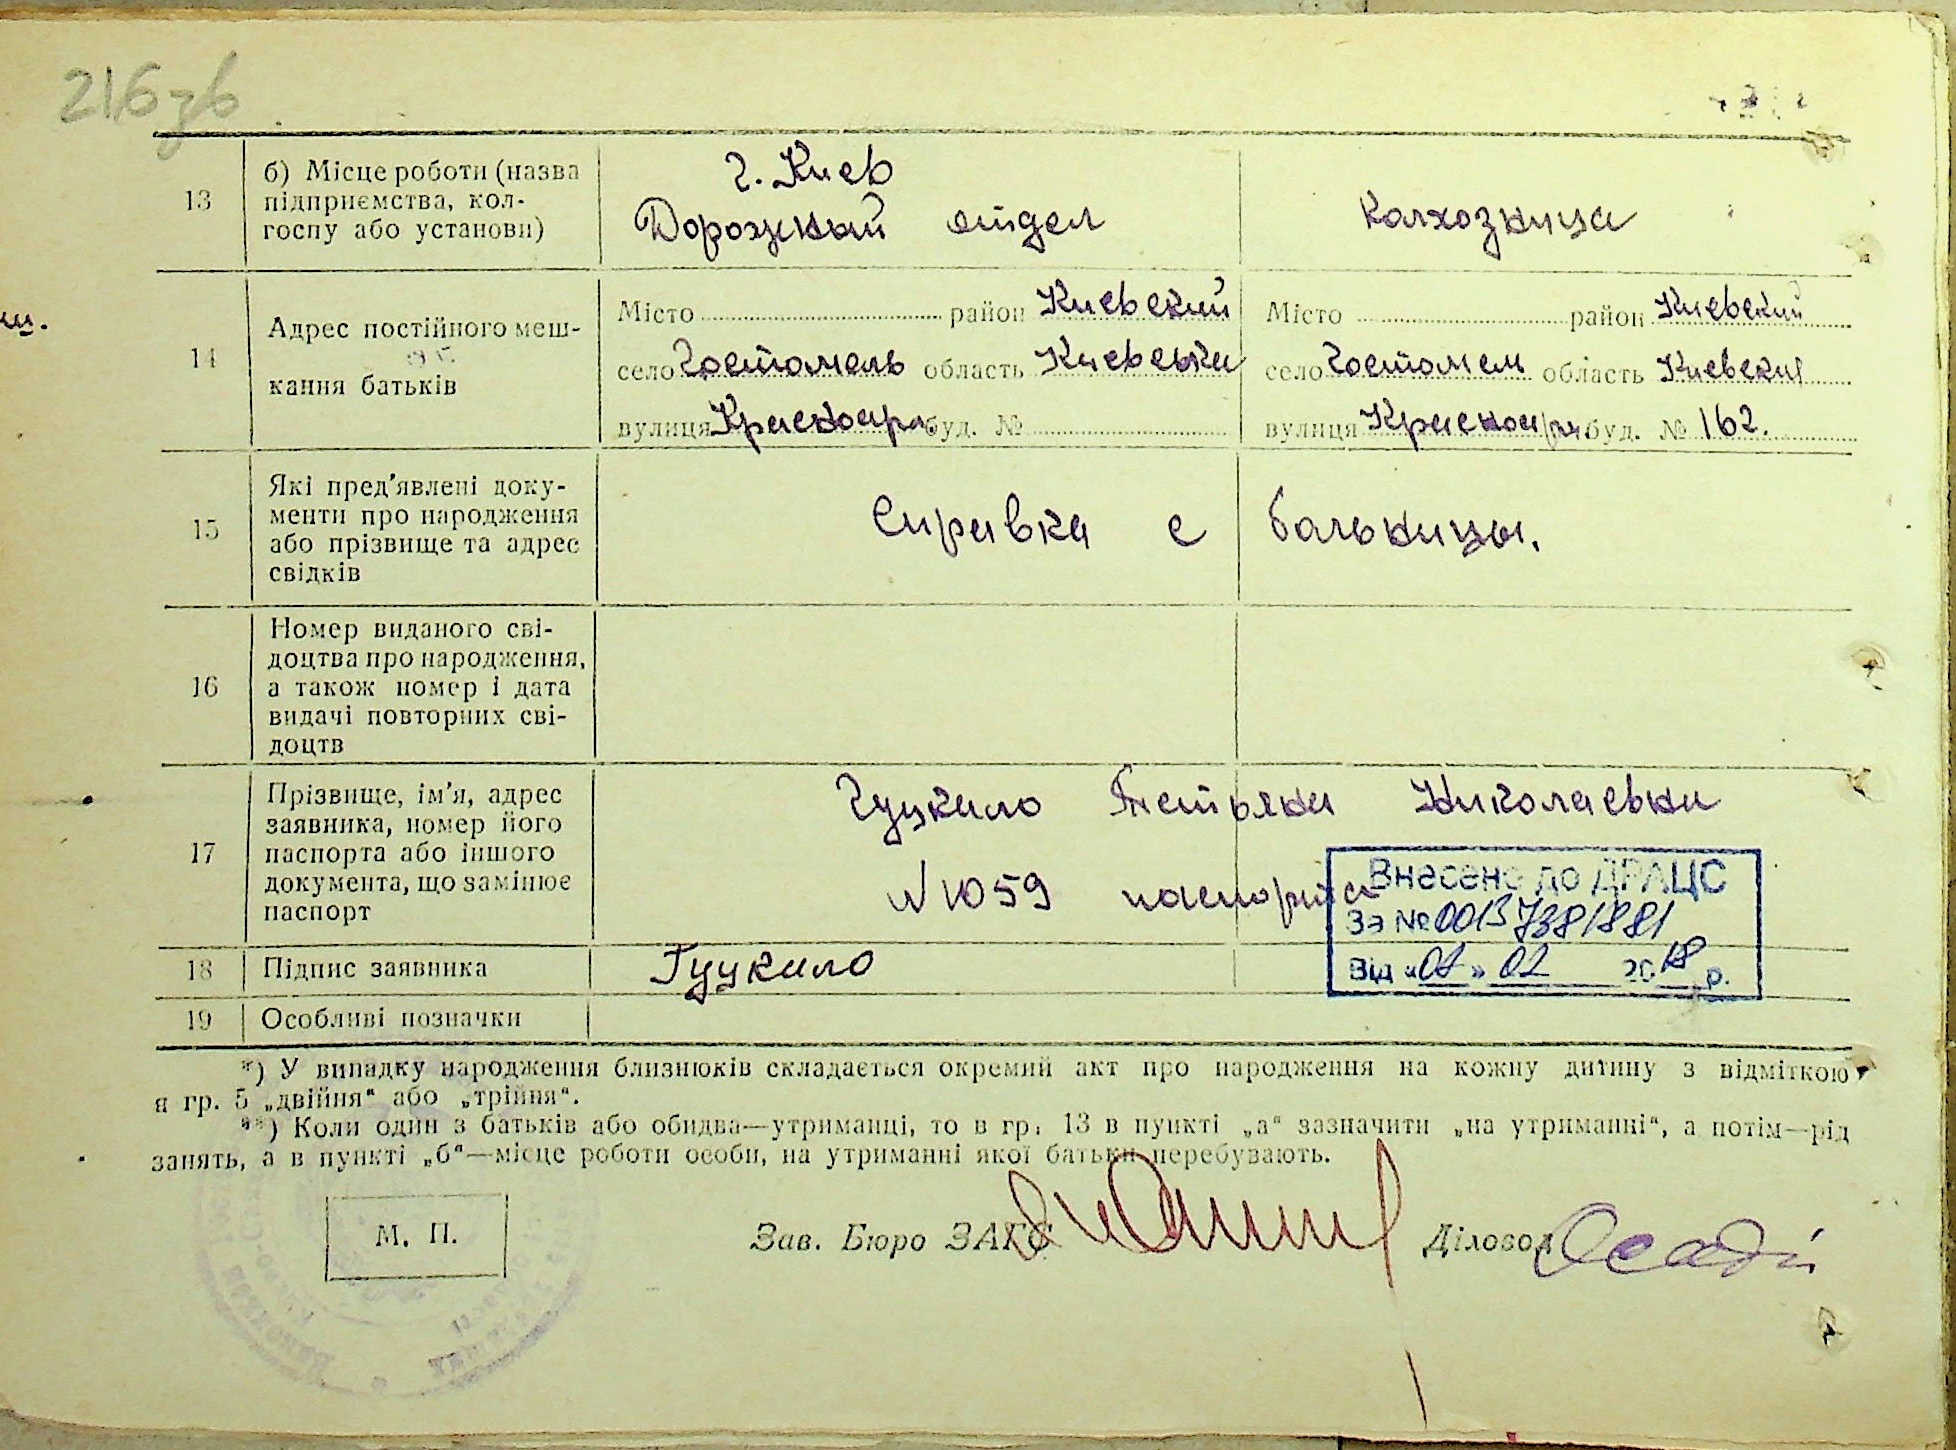 216зв
13 б) Місце роботи (назва
підприємства, кол-
госпу або установи)
г. Киев
Дорожный отдел
Колхозница
14 Адрес постійного меш-
кання батьків
Місто район Киевский
село Гостомель область Киевская
вулиця Красноар. буд. №
Місто район Киевский
село Гостомель область Киевская
вулиця Красноар буд. № 162.
15 Які пред'явлені доку-
менти про народження
або прізвище та адрес
свідків
Справка с больницы.
16 Номер виданого сві-
доцтва про народження,
а також номер і дата
видачі повторних сві-
доцтв
17 Прізвище, ім'я, адрес
заявника, номер його
паспорта або іншого
документа, що замінює
паспорт
Гуцкало Николаевна
N 1059 паспорта
Внесено до ДРАЦС
За № 00137381881
Від « » 02 2018 р.
18 Підпис заявника
Гуцкало
19 Особливі позначки
*) У випадку народження близнюків складається окремий акт про народження на кожну дитину з відміткою
в гр. 5 „двійня“ або „трійня“.
**) Коли один з батьків або обидва—утриманці, то в гр. 13 в пункті „а“ зазначити „на утриманні“, а потім—рід
занять, а в пункті „б“—місце роботи особи, на утриманні якої батьки перебувають.
М. П.
Зав. Бюро ЗАГС
Діловод